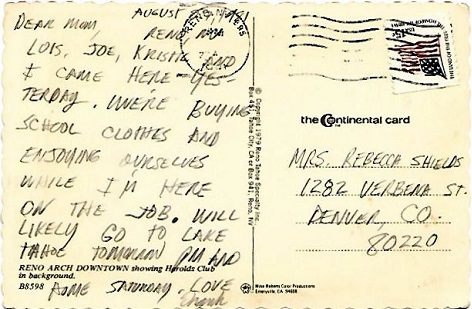 AUGUST
DEAR MOM, RENO,
LOIS, JOE, KRISTIE AND
I CAME HERE YES-
TERDAY. WE'RE BUYING
SCHOOL CLOTHES AND
ENJOYING OURSELVES
WHILE I'M HERE
ON THE JOB. WILL
LIKELY GO TO LAKE
TAHOE TOMORROW PM AND
HOME SATURDAY. LOVE
RENO ARCH DOWNTOWN showing Harolds Club
in background.
B8598
© Copyright 1979 Reno Tahoe Specialty Inc.
Tahoe City, CA or Box 941, Reno, NV
Mike Roberts Color Productions
Emeryville, CA 94608
RENO
the Continental card
MRS. REBECCA SHIELDS
1282 VERBENA ST.
DENVER, CO.
80220